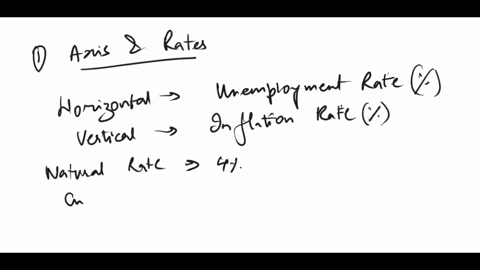 ① Axis & Rates
Horizontal → Unemployment Rate (%)
Vertical → Inflation Rate (%)
Natural Rate ⇒ 4%
Cu